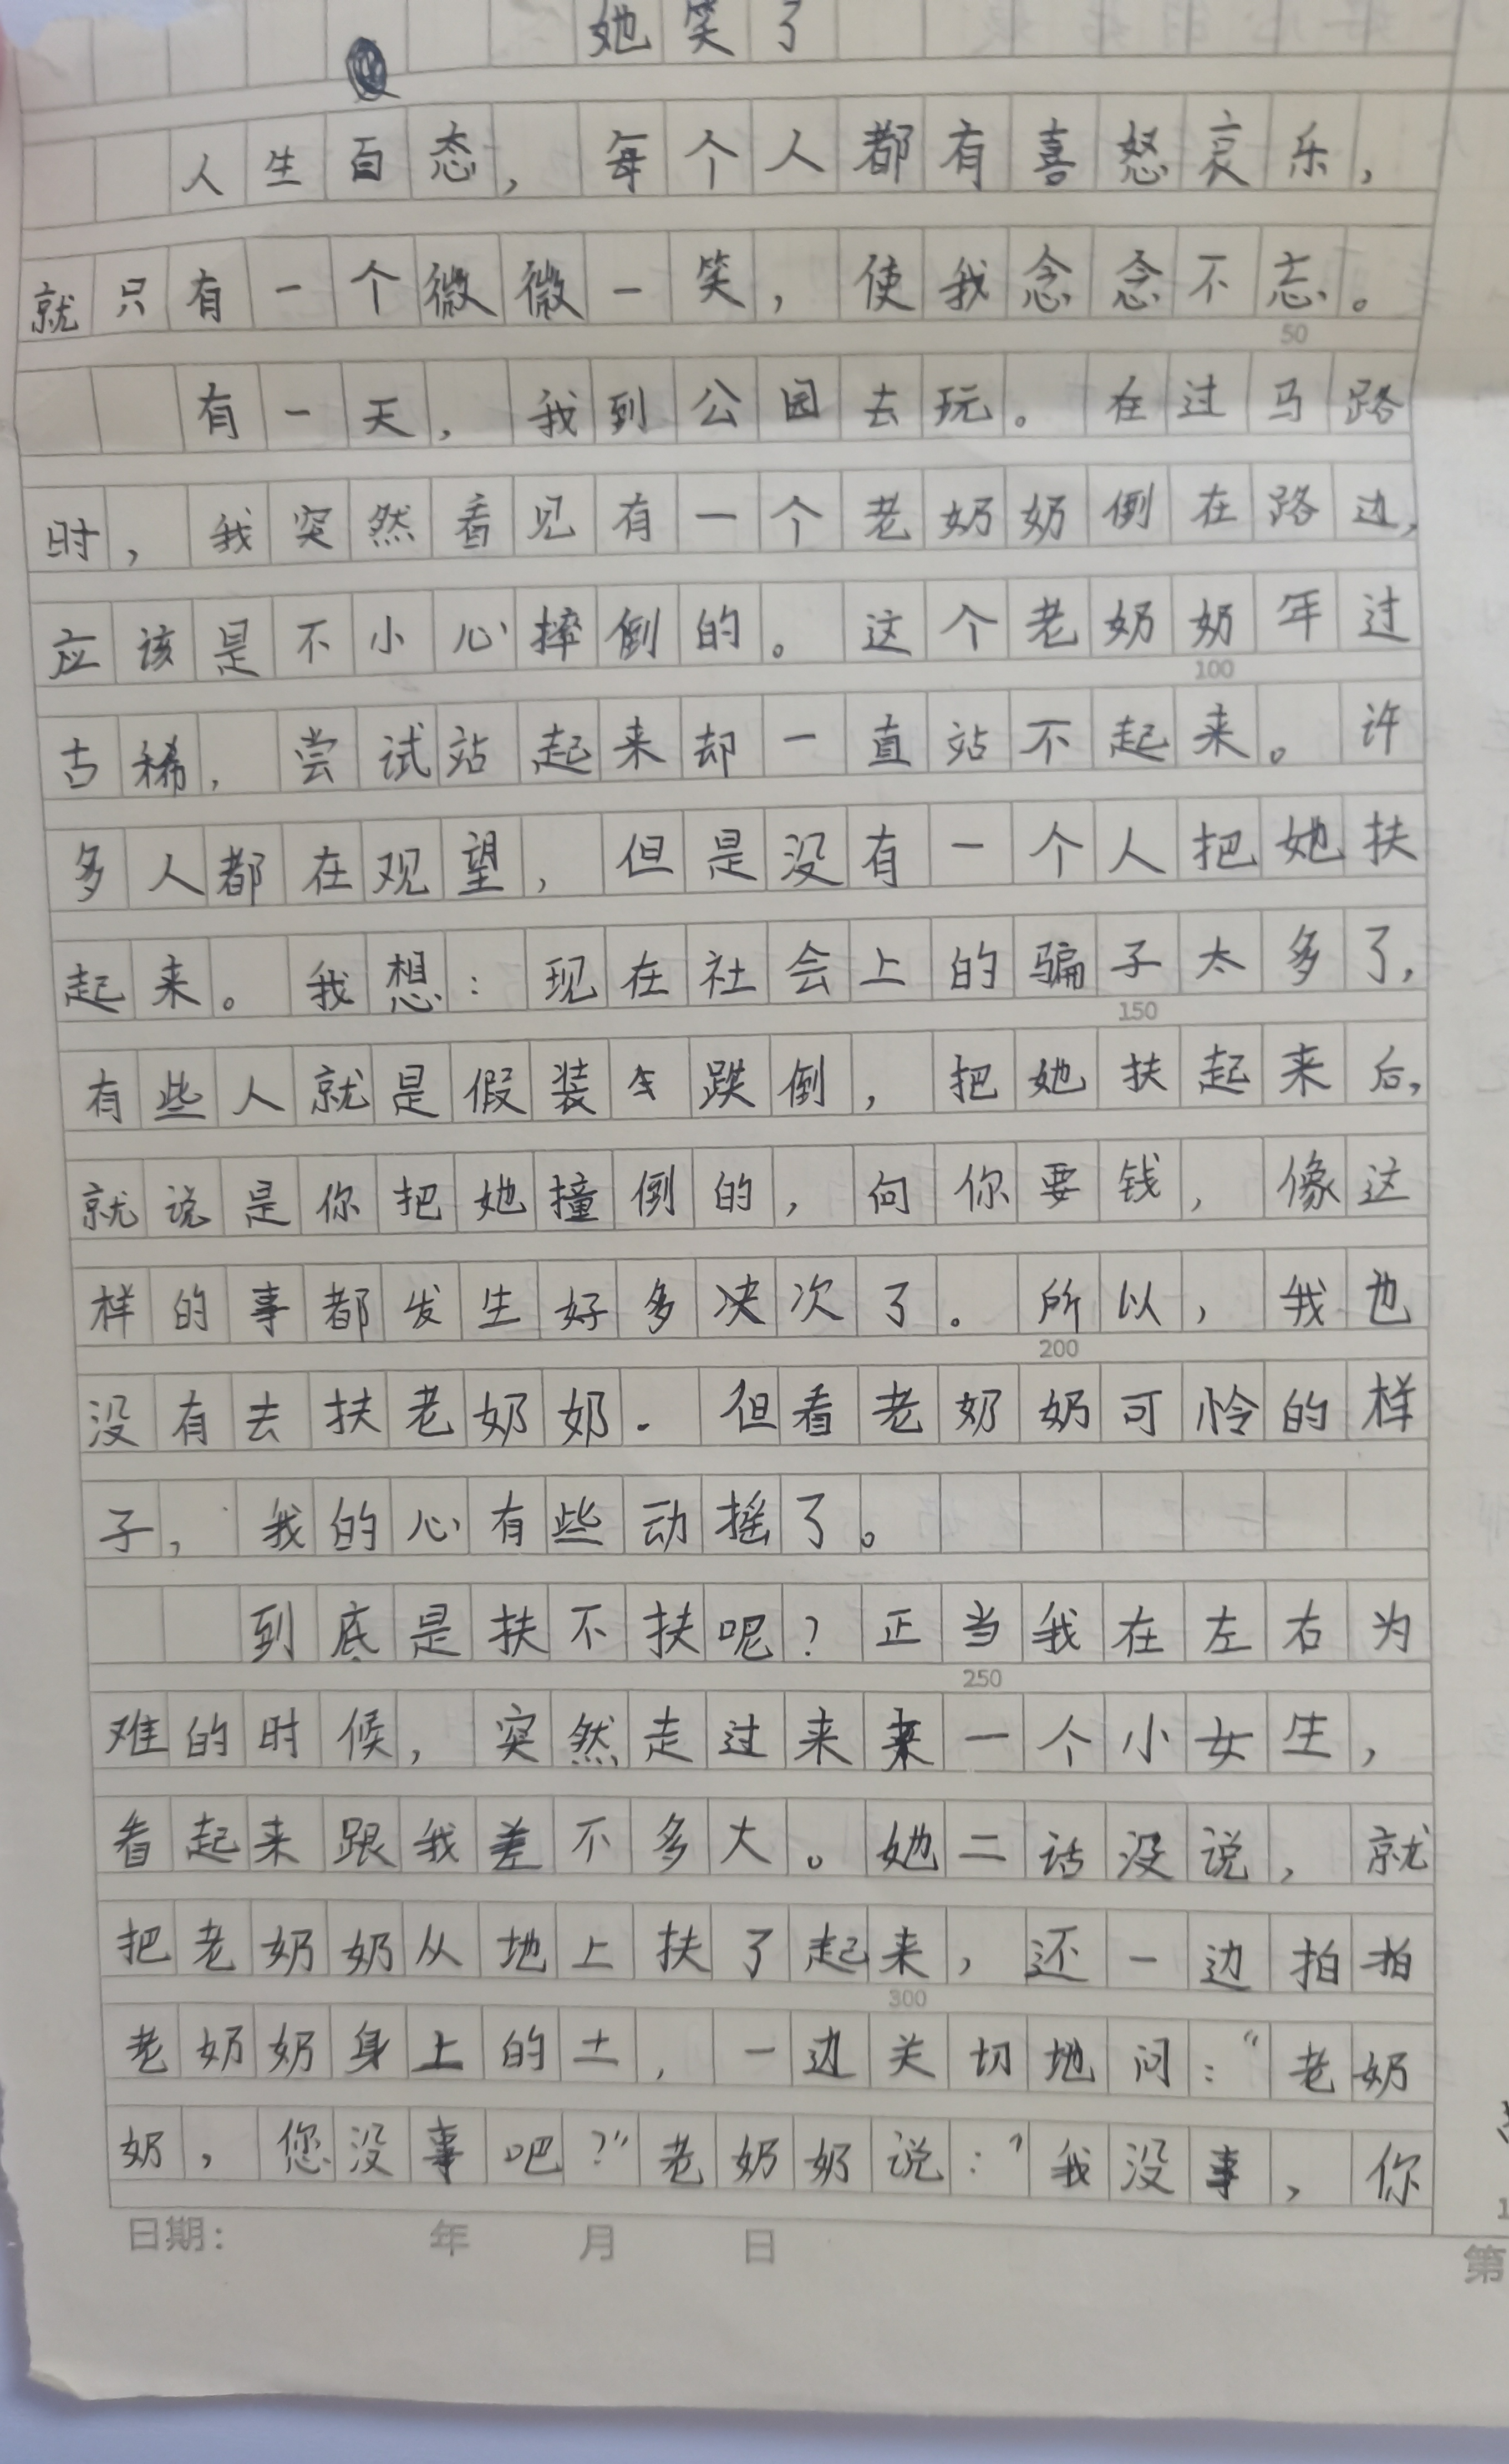 她笑了
人生百态，每个人都有喜怒哀乐，
就只有一个微微一笑，使我念念不忘。
50
有一天，我到公园去玩。在过马路
时，我突然看见有一个老奶奶倒在路边，
应该是不小心摔倒的。这个老奶奶年过
100
古稀，尝试站起来却一直站不起来。许
多人都在观望，但是没有一个人把她扶
起来。我想：现在社会上的骗子太多了，
150
有些人就是假装跌倒，把她扶起来后，
就说是你把她撞倒的，向你要钱，像这
样的事都发生好多次了。所以，我也
200
没有去扶老奶奶.但看老奶奶可怜的样
子，我的心有些动摇了。
到底是扶不扶呢？正当我在左右为
250
难的时候，突然走过来来一个小女生，
看起来跟我差不多大。她二话没说，就
把老奶奶从地上扶了起来，还一边拍拍
300
老奶奶身上的土，一边关切地问：“老奶
奶，您没事吧？”老奶奶说：”我没事，你
日期： 年 月 日
第